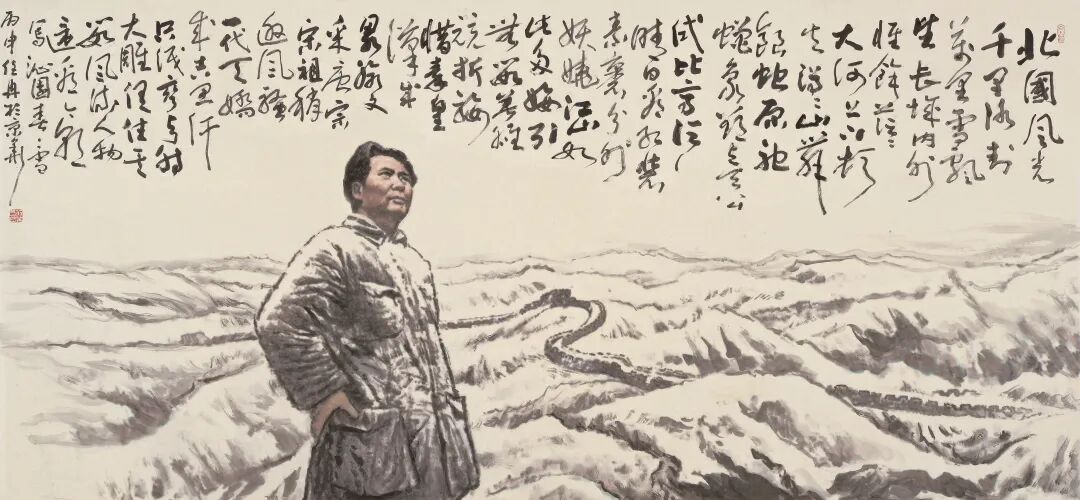 北國風光
千里冰封
萬里雪飄
望長城内外
惟餘莽莽
大河上下頓
失滔滔山舞
銀蛇原馳
蠟象欲與天公
試比高須
晴日看紅裝
素裹分外
妖嬈江山如
此多嬌引
無數英雄
競折腰
惜秦皇
漢武
畧輸文
采唐宗
宋祖稍
遜風騷
一代天驕
成吉思汗
只識彎弓射
大雕俱往矣
數風流人物
還看今朝
寫沁園春雪
丙申 於京華